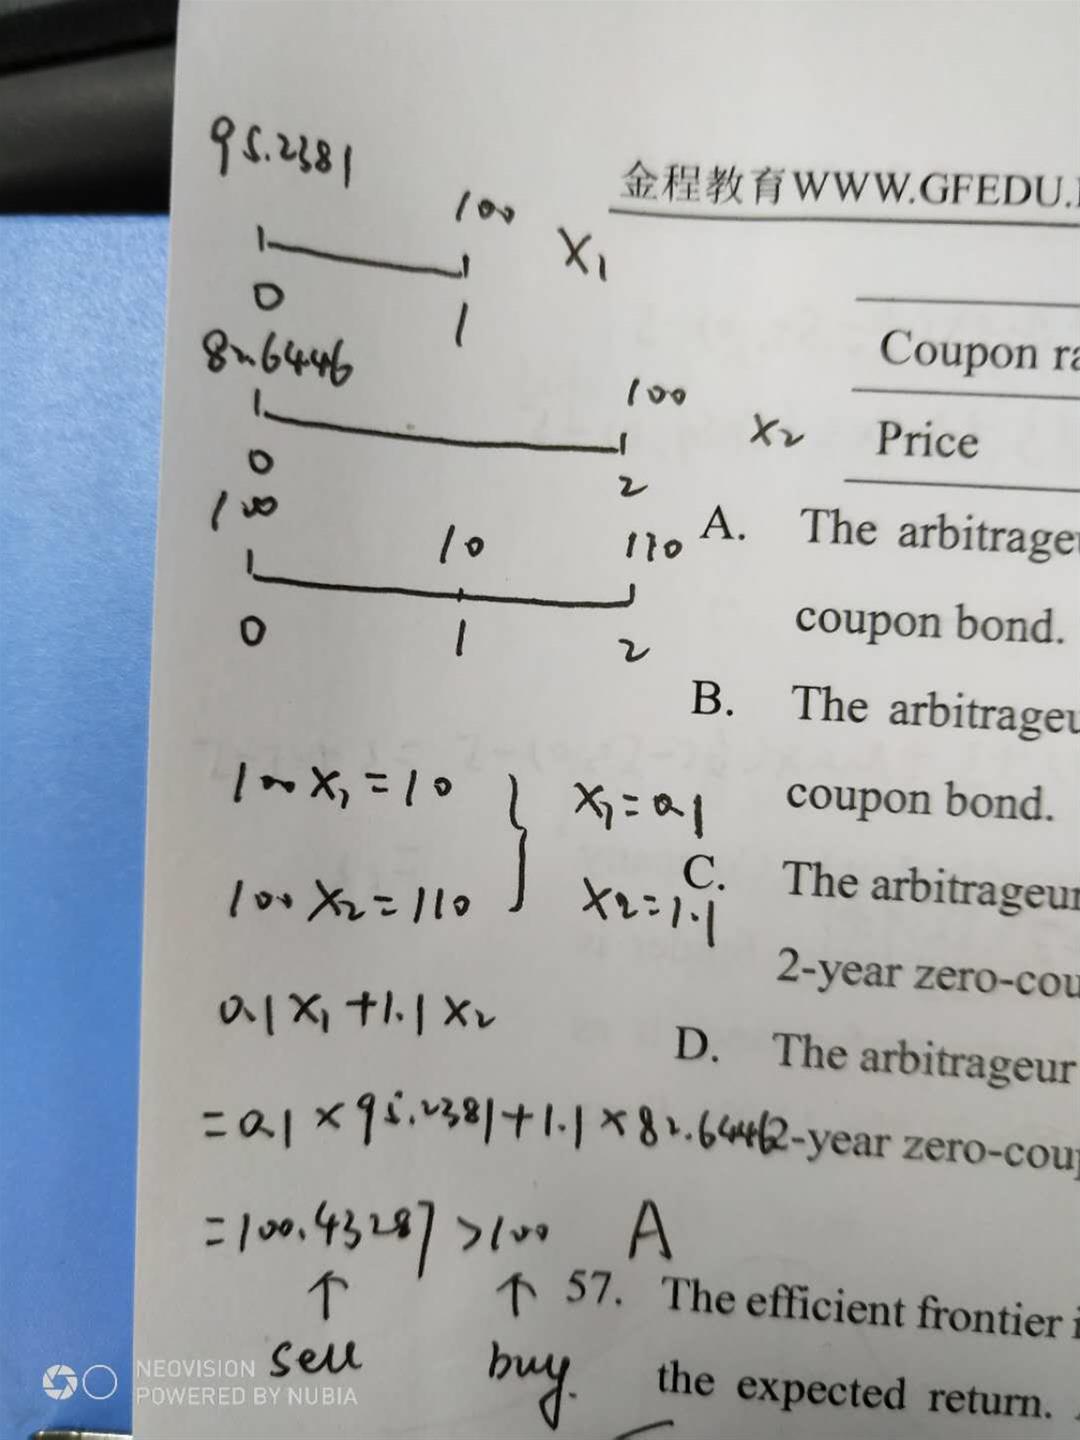 95.2381
100
X1
0
1
82.6446
100
X2
0
2
100
10
110
0
1
2
100 X1 = 10
X1 = 0.1
100 X2 = 110
X2 = 1.1
0.1 X1 + 1.1 X2
= 0.1 × 95.2381 + 1.1 × 82.6446
= 100.43287 > 100 A
↑ ↑
sell buy.
金程教育WWW.GFEDU.
Coupon
Price
A. The arbitrageu
coupon bond.
B. The arbitrageu
coupon bond.
C. The arbitrageur
2-year zero-cou
D. The arbitrageur
2-year zero-coup
57. The efficient frontier
the expected return.
NEOVISION
POWERED BY NUBIA